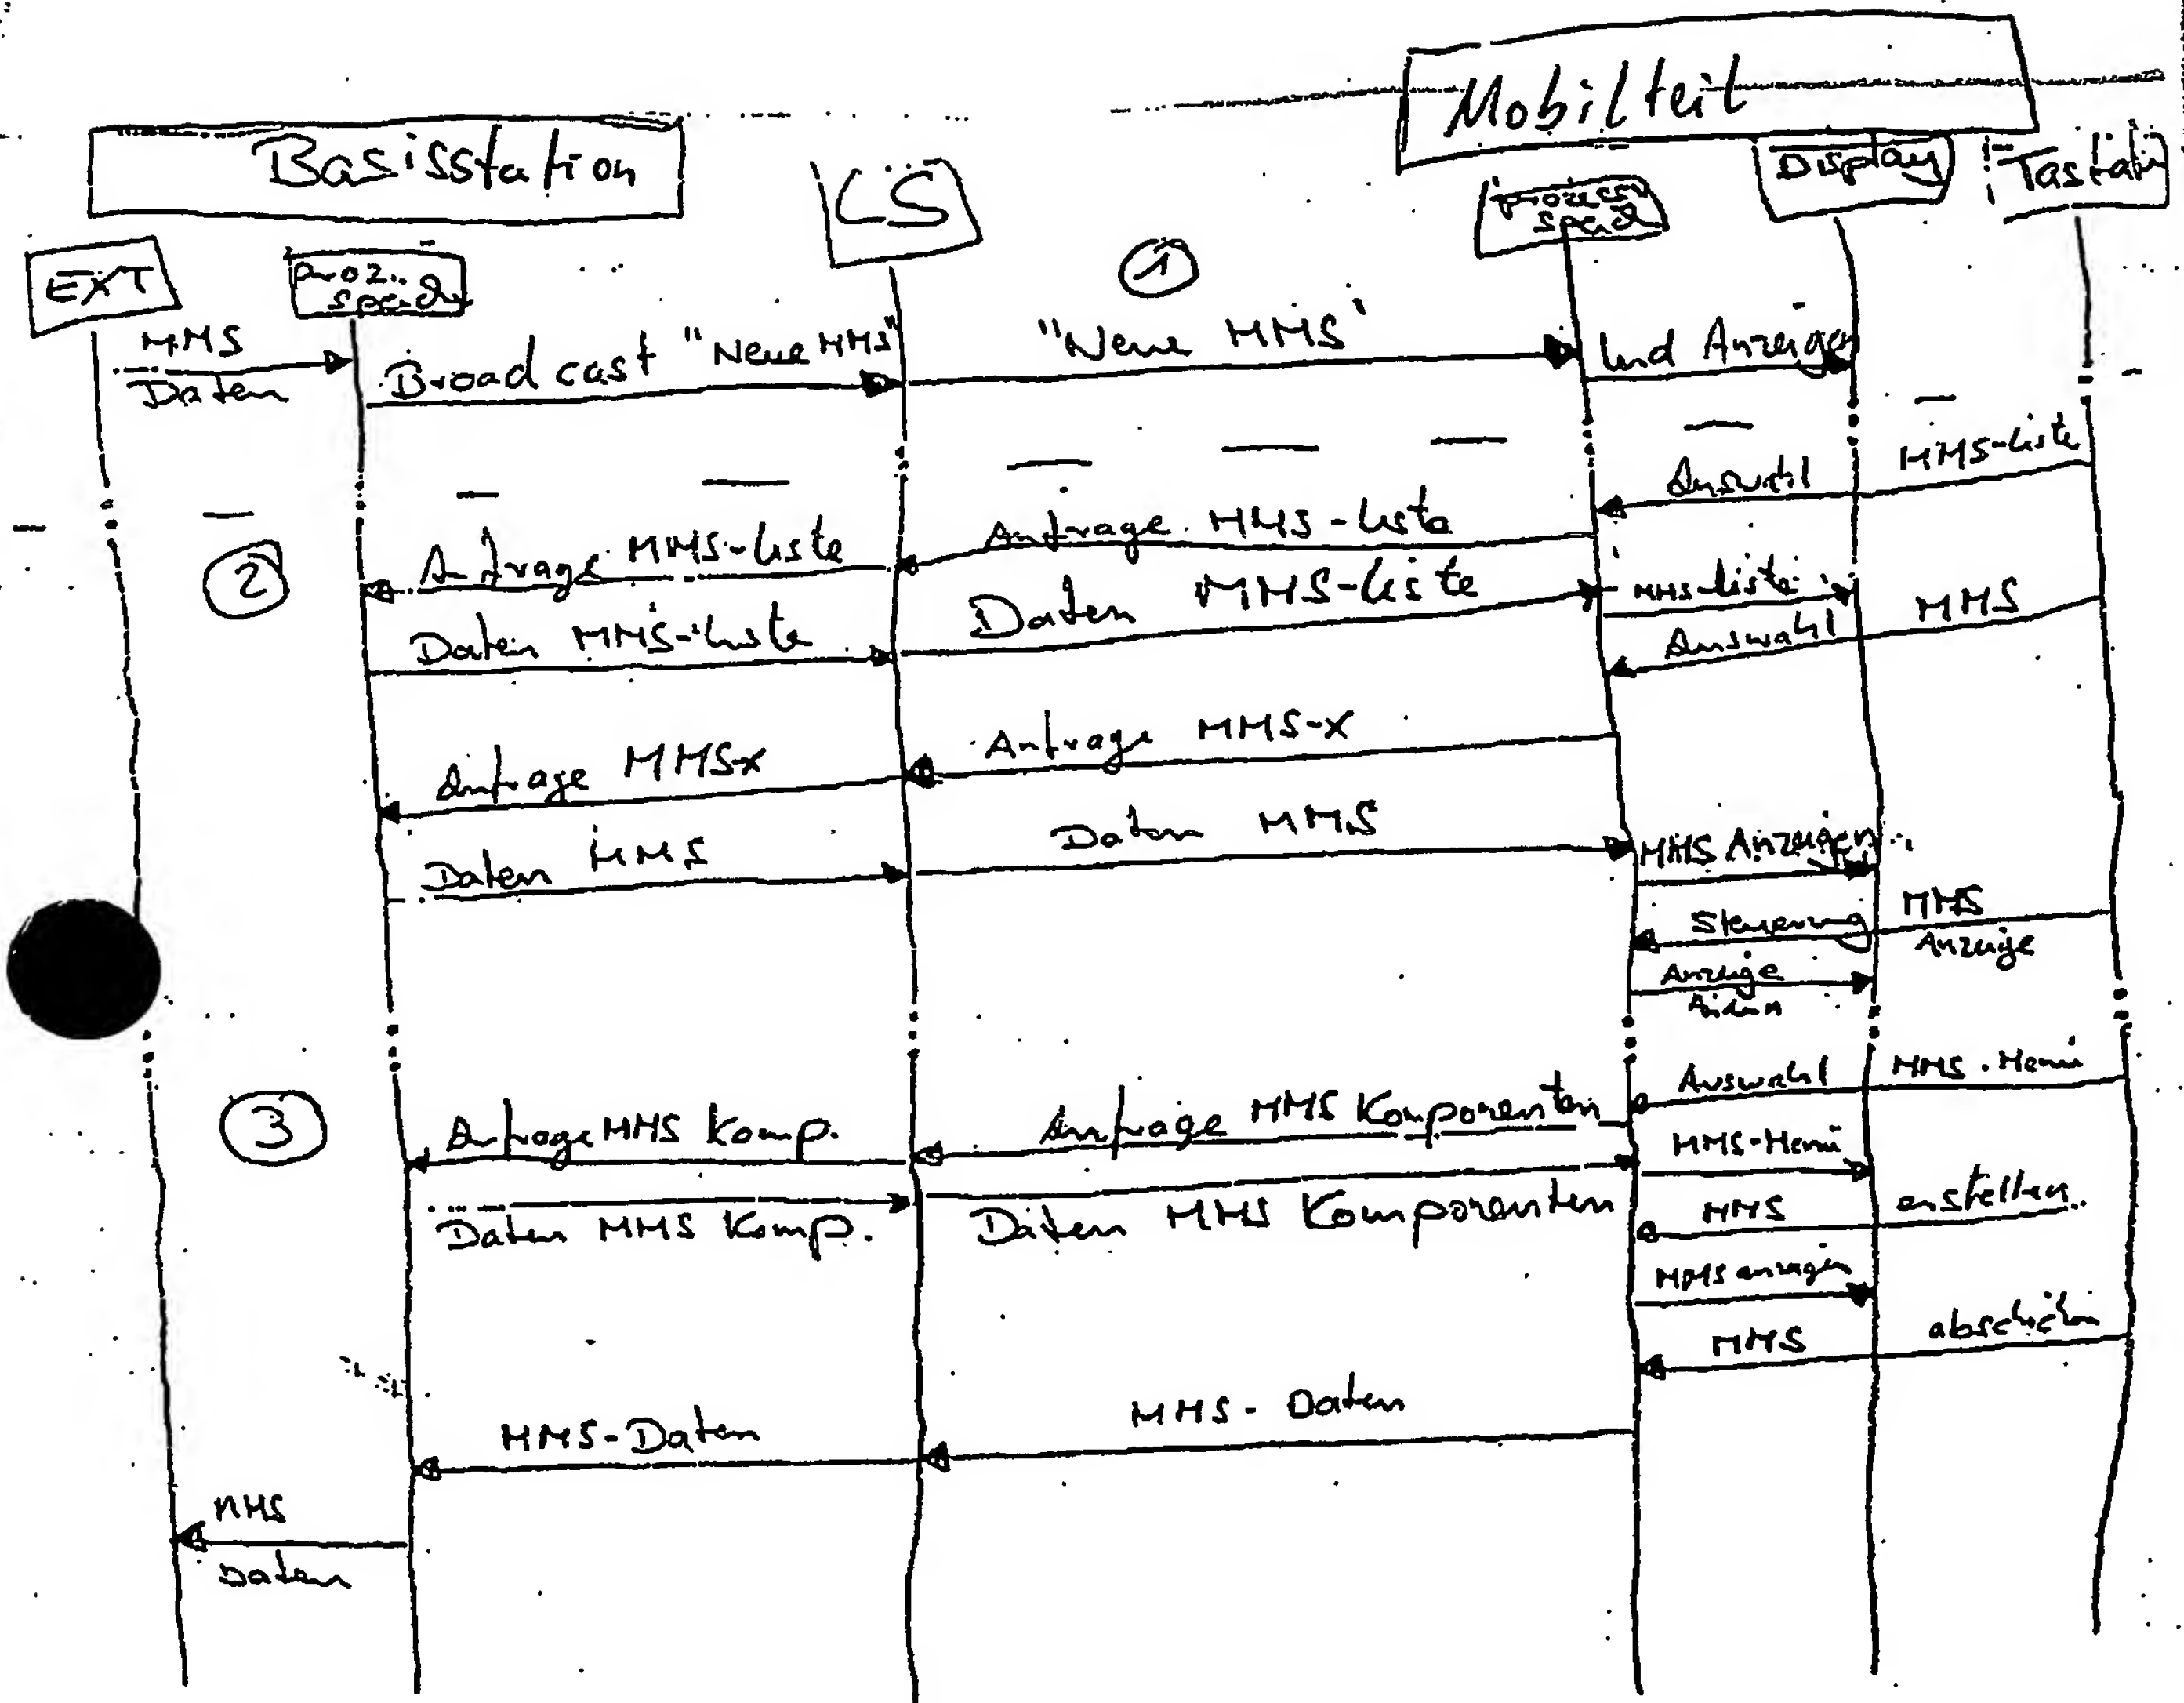 Mobilteil
Basisstation
CS
Display
Tastatur
EXT
proz.
speich
prozess
speich
1
MMS
Daten
Broadcast "Neue MMS"
"Neue MMS"
Ind Anzeigen
Auswahl MMS-Liste
2
Anfrage MMS-Liste
Anfrage MMS-Liste
Daten MMS-Liste
Daten MMS-Liste
MMS-Liste
Auswahl MMS
Anfrage MMS-x
Anfrage MMS-x
Daten MMS
Daten MMS
MMS Anzeigen
Steuerung MMS
Anzeige
Anzeige
Auswahl MMS-Menü
3
Anfrage MMS Komp.
Anfrage MMS Komponenten
MMS-Menü
Daten MMS Komp.
Daten MMS Komponenten
MMS erstellen
MMS anzeigen
MMS abschicken
MMS-Daten
MMS-Daten
MMS
Daten